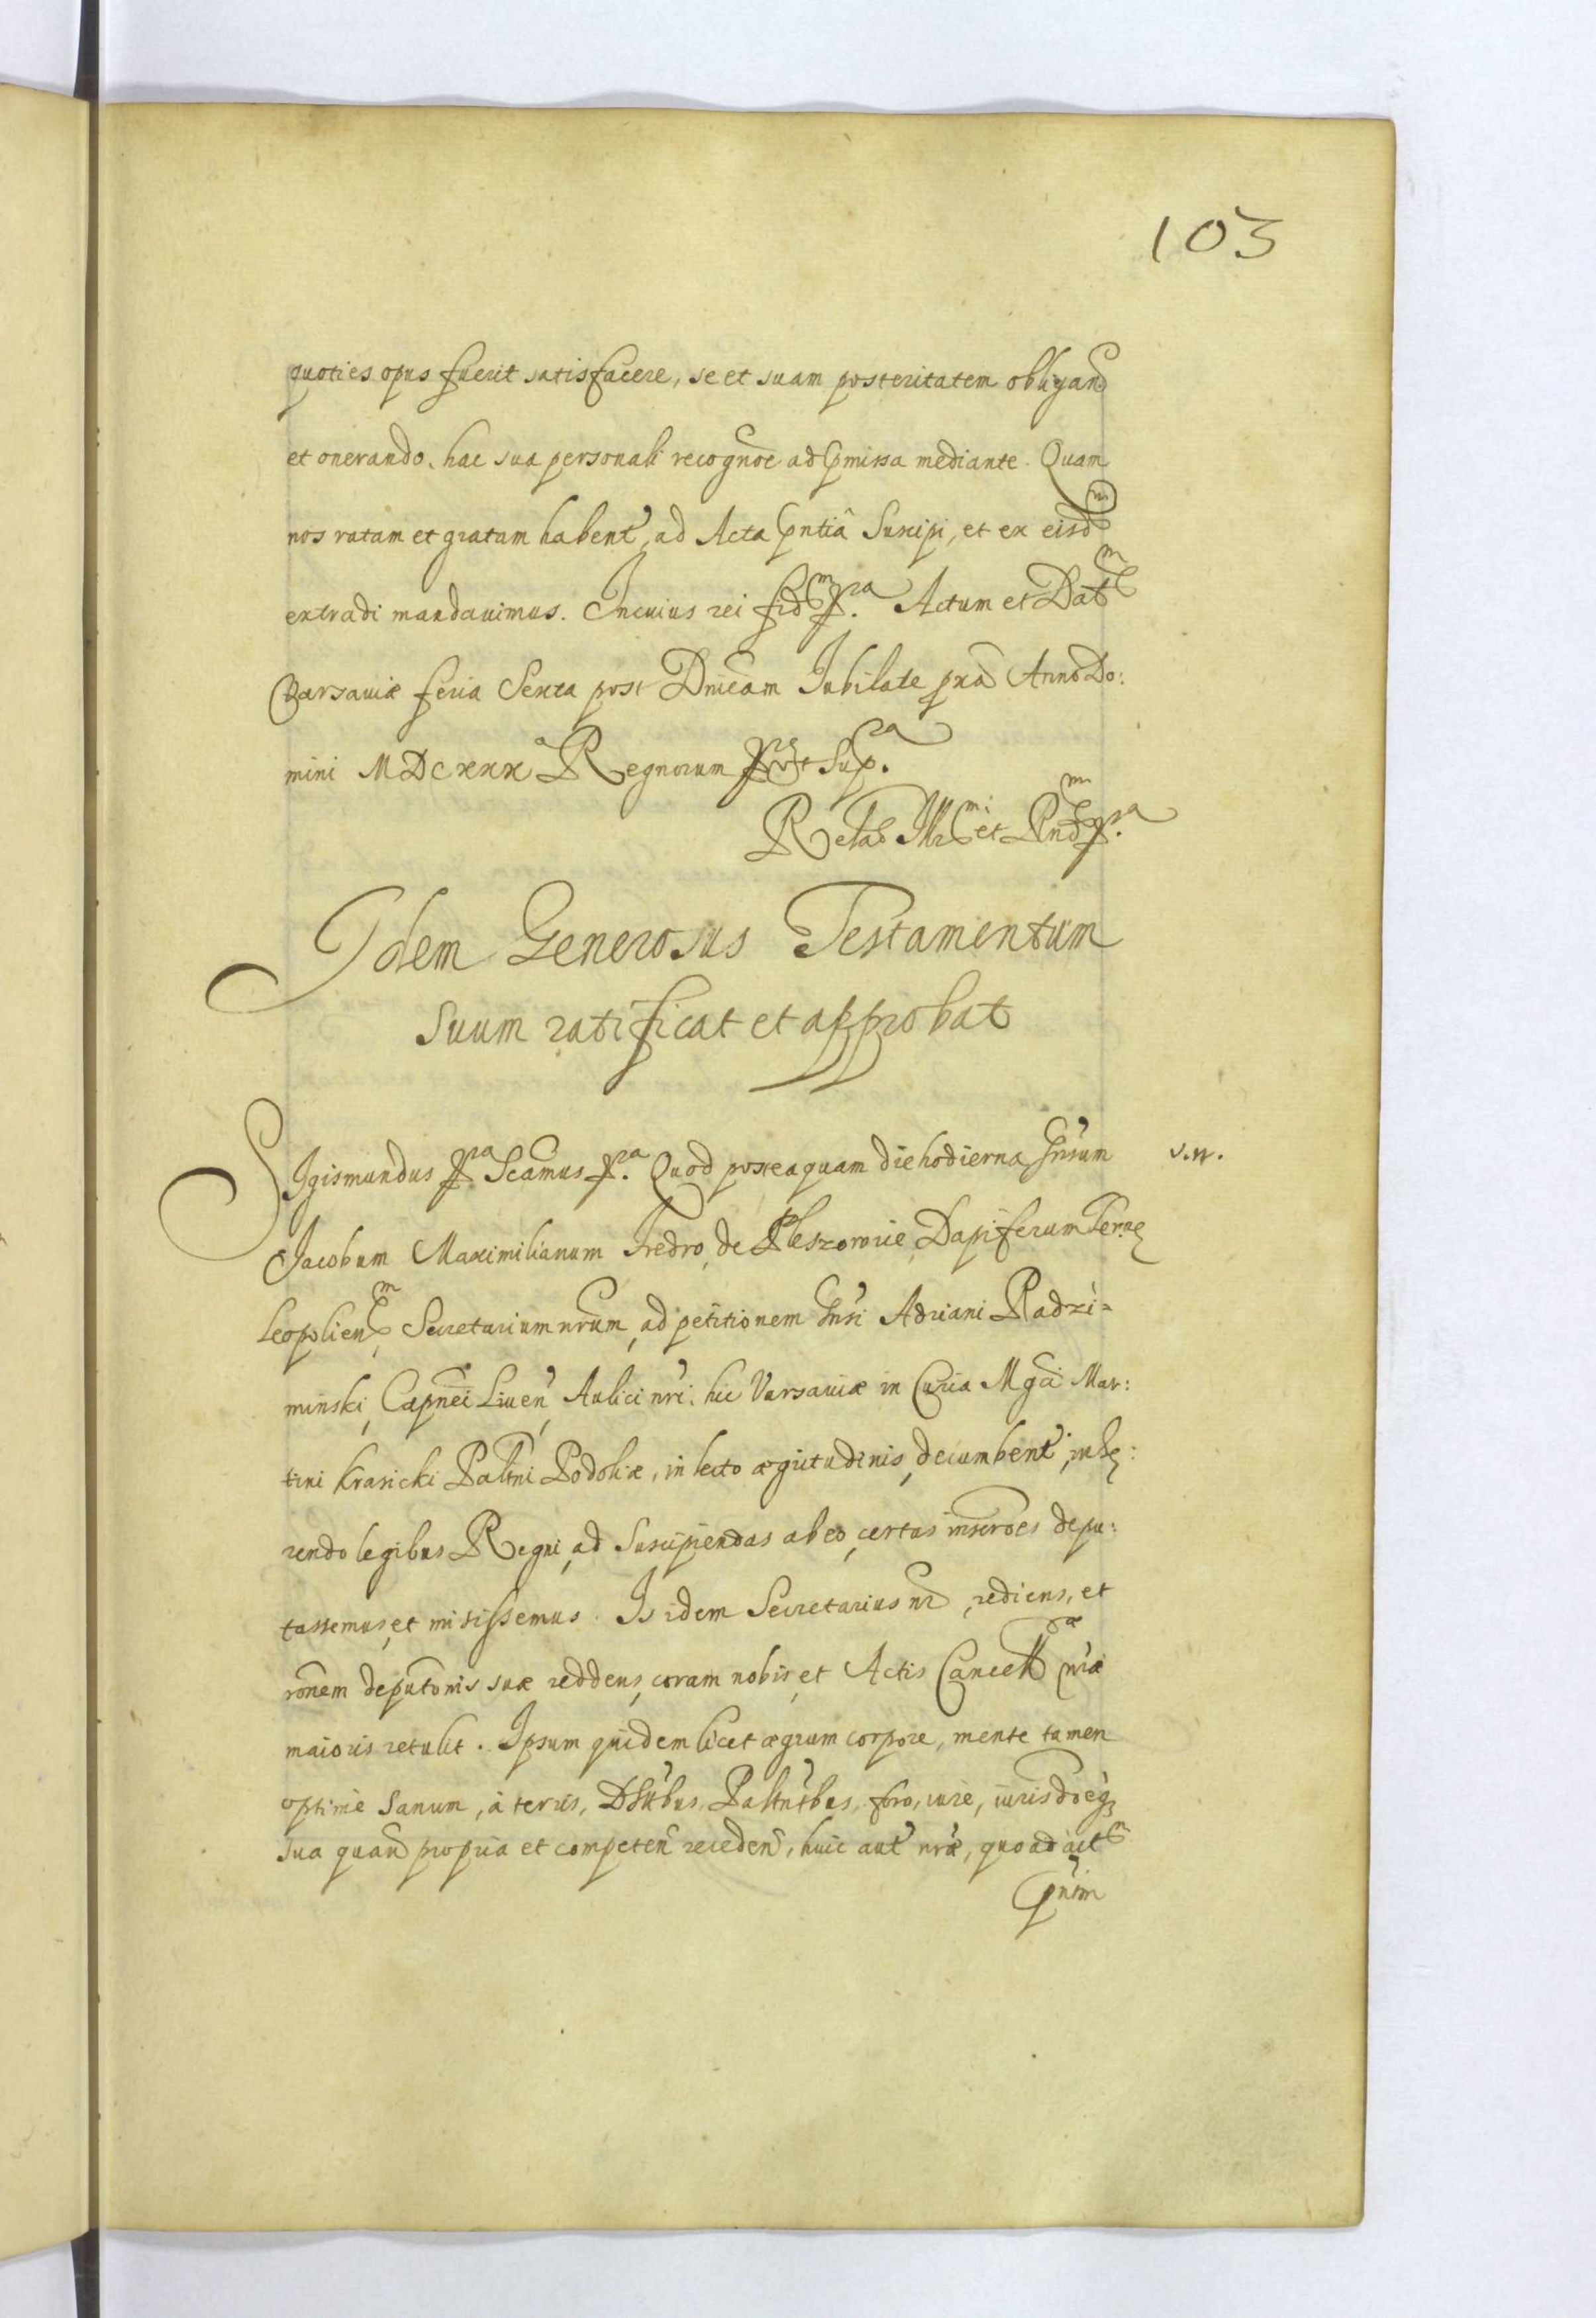 103
quoties opus fuerit satisfacere, se et suam posteritatem obligan
et onerando, hac sua personali recognoe ad pmissa mediante. Quam
nos ratam et gratam habent, ad Acta pntia Suscipi, et ex eisdm
extradi mandavimus. In cuius rei fidm pra Actum et Datm
Varsaviæ feria Sexta post Dnicam Iubilate pxa Anno Do:
mini MDCXXXo Regnorum Supra
Idem Generosus Testamentum
suum ratificat et approbat
SIgismundus pra Scamus pra Quod posteaquam die hodierna Gnsum
Jacobum Maximilianum Fredro, de Pleszowice, Dapiferum Terræ
Leopolienm, Secretarium nrum, ad petitionem Gnsi Adriani Radzi=
minski, Capnei Liven, Aulici nri, hic Varsaviæ in Curia Mgci Mar:
tini Krasicki Paltni Podoliæ, in lecto ægritudinis, decumbent, inhę:
rendo legibus Regni, ad Suscipiendas ab eo, certas inscroes depu:
tassemus, et misissemus. Is idem Secretarius nr, rediens, et
ronem deputonis suæ reddens, coram nobis, et Actis Cancellræ nræ
maioris retulit. Ipsum quidem licet ægrum corpore, mente tamen
optime Sanum, à terris, Distibus, Paltntbus, foro, iure, iurisdoeq
sua quan propria et competen receden, huic aut nræ, quoad actm
pntm